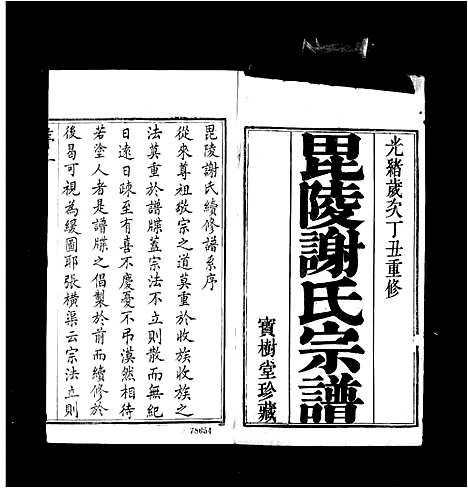 光緒歲次丁丑重修
毘陵謝氏宗譜
寳樹堂珍藏
毘陵謝氏續修譜系序
從來尊祖敬宗之道莫重於收族收族之
法莫重於譜牒蓋宗法不立則散而無紀
日遠日疎至有喜不慶憂不吊漠然相待
若塗人者是譜牒之倡製於前而續修於
後曷可視為緩圖耶張橫渠云宗法立則
78654